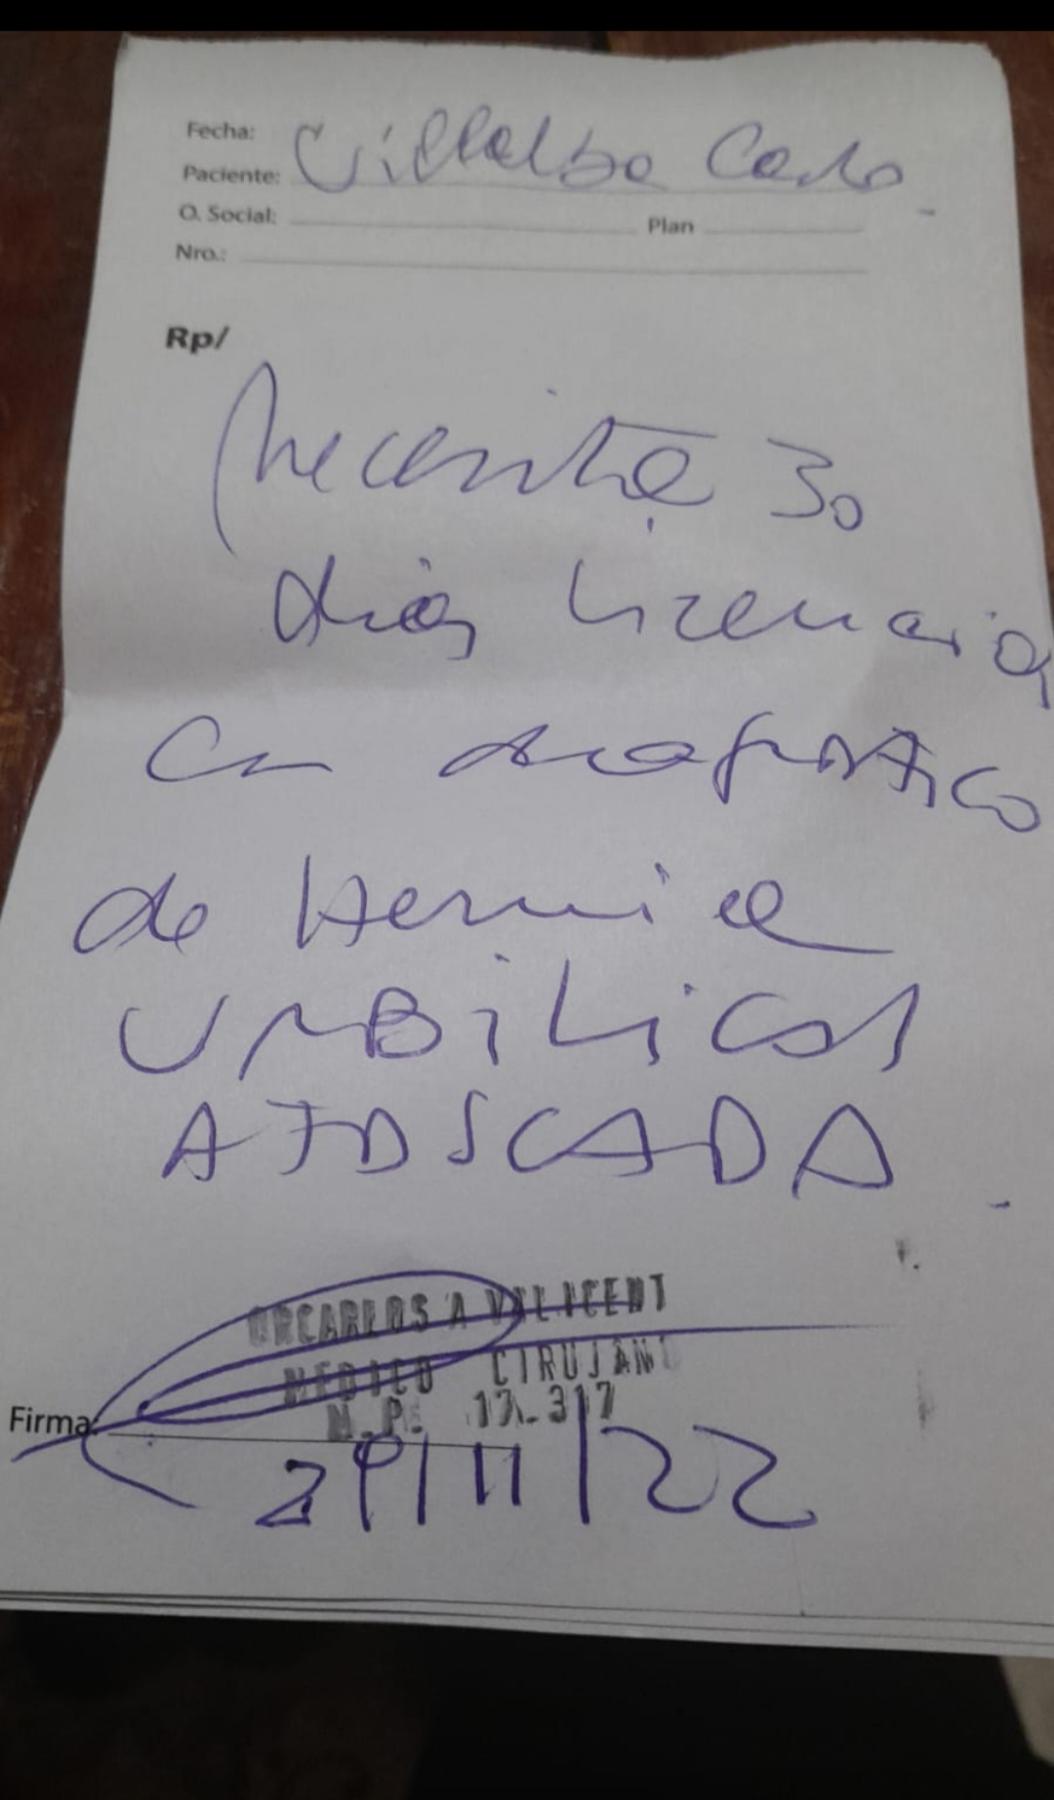 Fecha:
Paciente: Villalba Carlos
O. Social: Plan
Nro.:
Rp/
Necesita 30
dias licencia
con diagnostico
de Hernia
UMBiLical
ATASCADA.
DR CARLOS A VILICENT
MEDICO CIRUJANO
M.P. 17.317
Firma:
29/11/22